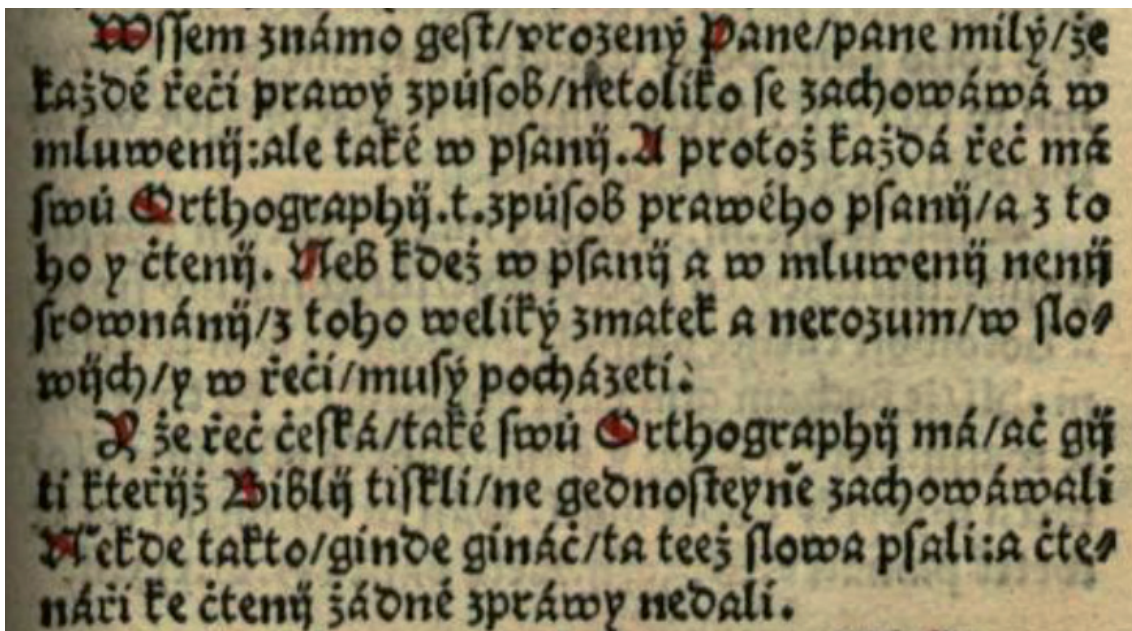 Wſſem známo geſt/vrozený Pane/pane milý/že
každé řeči prawý zpuͦſob/netoliko ſe zachowáwá w
mluwenij:ale také w pſanij. A protož každá řeč má
ſwú Orthographij.t.zpuͦſob prawého pſanij/a z to
ho y čtenij. Neb kdež w pſanij a w mluwenij nenij
ſrownánij/z toho weliký zmatek a nerozum/w ſlo⸗
wijch/y w řeči/muſý pocházeti.
Y že řeč čeſká/také ſwú Orthographij má/ač gij
ti kteřijž Biblij tiſkli/ne gednoſteyně zachowáwali
Někde takto/ginde gináč/ta teež ſlowa pſali:a čte⸗
náři ke čtenij žádné zpráwy nedali.